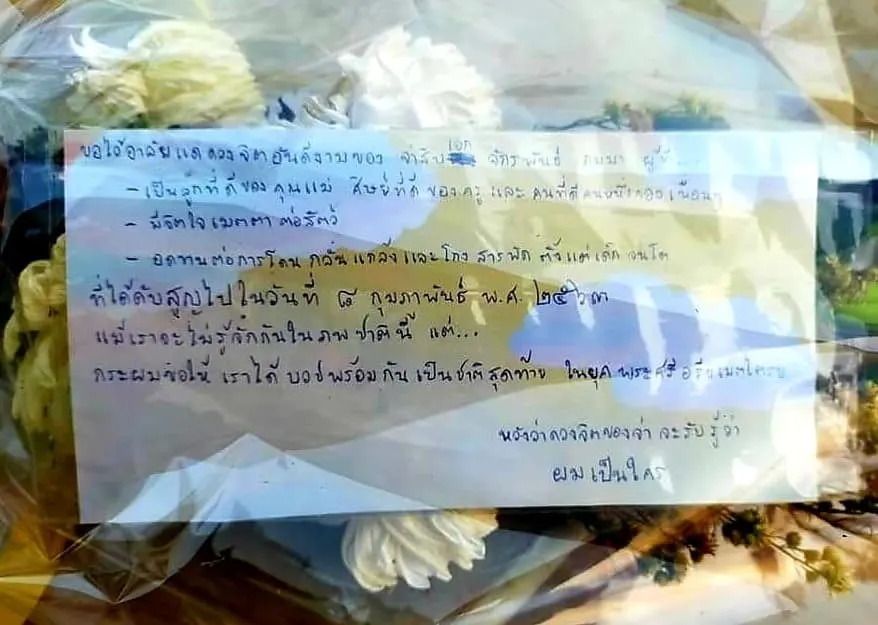 ขอไว้อาลัยแด่ดวงจิตอันดีงามของ จ่าสิบเอก จักรพันธ์ ถมมา ผู้ซึ่ง...
- เป็นลูกที่ดีของคุณแม่ ศิษย์ที่ดีของครู และ คนที่ดีคนหนึ่งของเพื่อนๆ
- มีจิตใจเมตตาต่อสัตว์
- อดทนต่อการโดน กลั่นแกล้งและโกง สารพัด ตั้งแต่เด็ก จนโต
ที่ได้ดับสูญไปในวันที่ ๘ กุมภาพันธ์ พ.ศ. ๒๕๖๓
แม้เราจะไม่รู้จักกันในภพชาตินี้ แต่...
กระผมขอให้ เราได้ บวชพร้อมกันเป็นชาติสุดท้าย ในยุค พระศรีอริยเมตไตรย
หวังว่าดวงจิตของจ่า จะรับรู้ว่า
ผมเป็นใคร